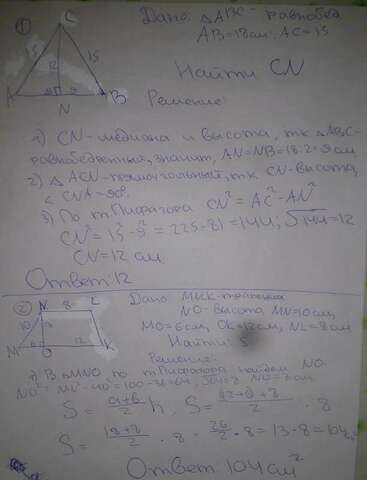 ① C Дано: △ABC - равнобед
AB = 18 см; AC = 15
15 15
12
Найти CN
A 9 9 B
N
Решение:
1) CN - медиана и высота, тк △ABC-
равнобедренный, значит, AN=NB=18:2=9 см
2) △ ACN - прямоугольный, тк CN - высота,
∠ CNA = 90°
3) По т Пифагора CN² = AC² - AN²
CN² = 15² - 9² = 225 - 81 = 144, √144 = 12
CN = 12 см
Ответ: 12
② N 8 L Дано: трапеция
10 NO - высота MN = 10 см,
M 6 O 12 K MO = 6 см, OK = 12 см, NL = 8 см
Найти: S
Решение:
1) В △ MNO по т Пифагора найдем NO
NO² = 100 - 36 = 64, NO = 8 см
S = a+b/2 · h, S = · 8
S = 18+8/2 · 8 = 26/2 · 8 = 13 · 8 = 104
Ответ: 104 см²